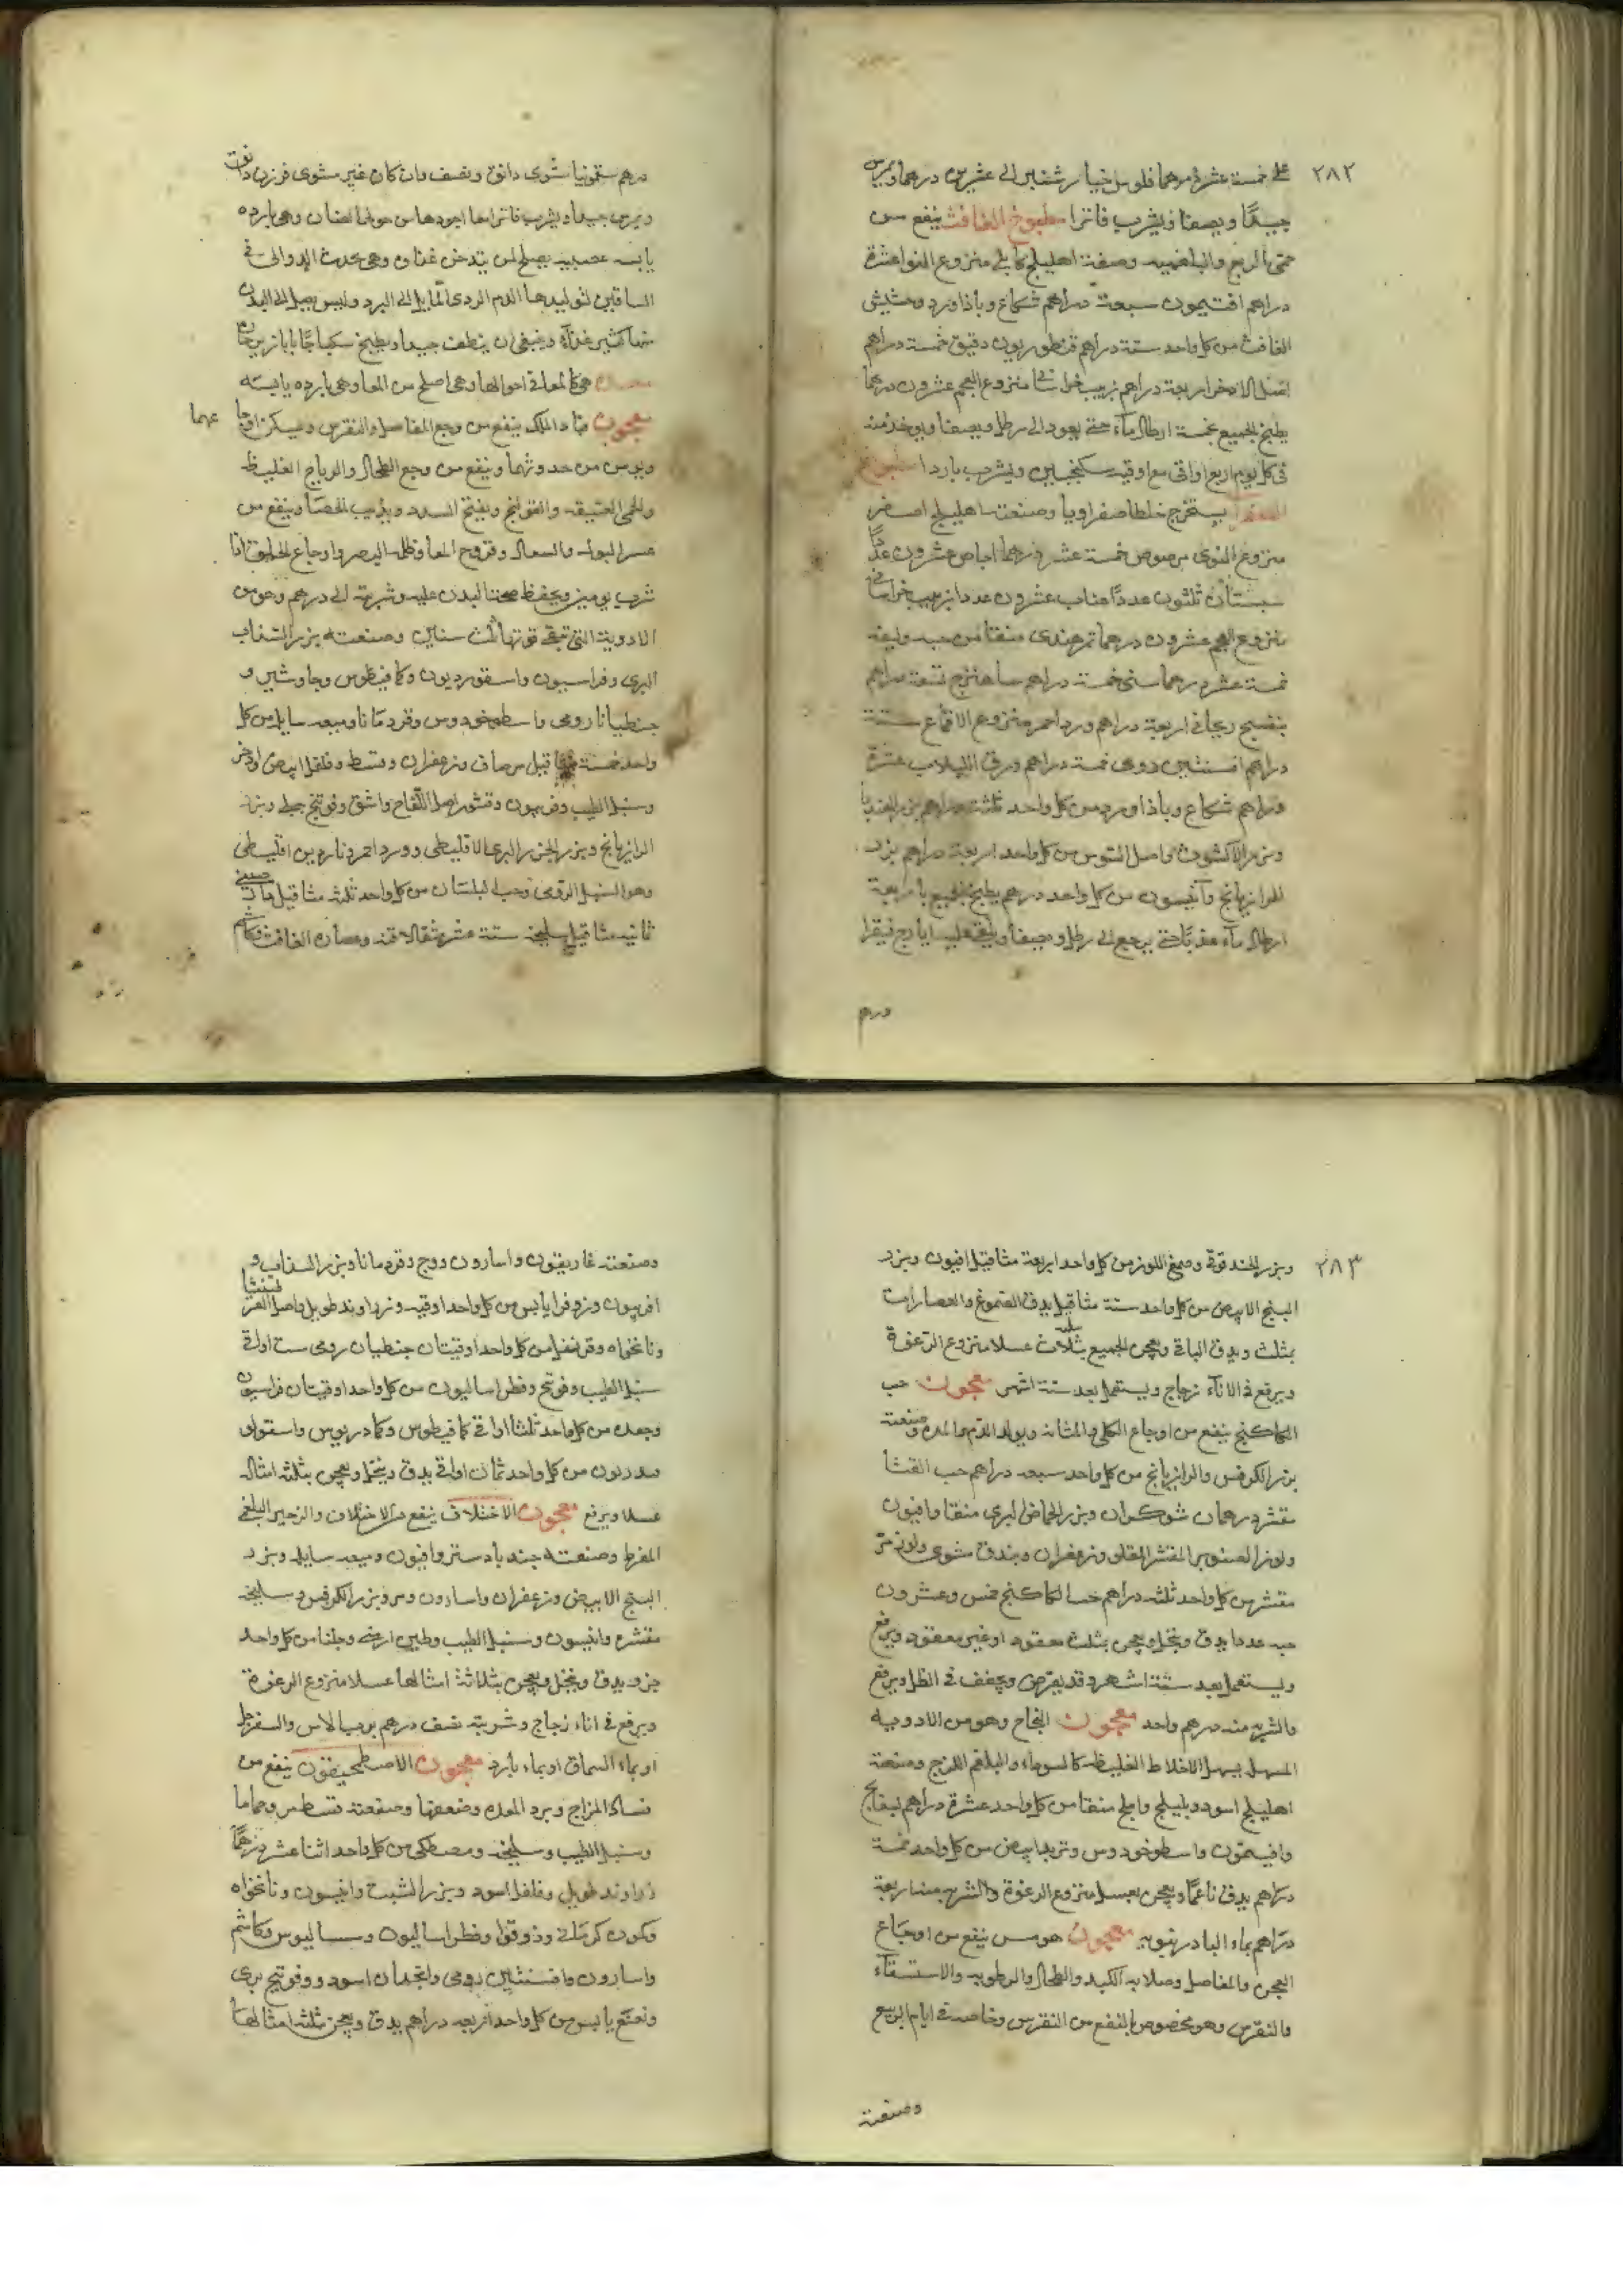 ٢٨٢
على خمسة عشر درهما فلوس خيار شنبر الى عشرين درهما ويمرس
جيدًا ويصفا ويشرب فاترا مطبوخ الغافث ينفع من
حمى الربع والبلغميه وصفته اهليلج كابلى منزوع النوا عشرة
دراهم افتيمون سبعة دراهم شكاع وباذاورد وحشيش
الغافث من كل واحد ستة دراهم قنطوريون دقيق خمسة دراهم
اصل الاذخر اربعة دراهم زبيب خراسانى منزوع العجم عشرون درهما
يطبخ الجميع بخمسة ارطال مآء حتى يعود الى رطل ويصفا ويوخذ منه
فى كل يوم اربع اواقى مع اوقيه سكنجبين ويشرب باردا مطبوخ
يستخرج خلطا صفراويا وصنعته اهليلج اصفر
منزوع النوى مرضوض خمسة عشر درهما اجاص عشرون عددًا
سبستان ثلثون عددًا عناب عشرون عددا زبيب خراسانى
منزوع العجم عشرون درهما تمر هندى منقا من حبه وليفه
خمسة عشر درهما سنى خمسة دراهم شاهترج تسعة دراهم
بنفسج ريحانى اربعة دراهم ورد احمر منزوع الاقماع ستة
دراهم افسنتين رومى خمسة دراهم ورق اللبلاب عشرة
دراهم شكاع وباذاورد من كل واحد ثلثة دراهم بزر الهندبا
وبزر الاكشوث واصل السوس من كل واحد اربعة دراهم بزر
الرازيانج وآنيسون من كل واحد درهم يطبخ الجميع باربعة
ارطال مآء عذبًا حتى يرجع الى رطل ويصفا ويلقى عليه ايارج فيقرا
درهم
درهم سقمونيا مشوى دانق ونصف وان كان غير مشوى فوزن دانق
ويمرس جيدا ويشرب فاترا امعا اجودها من حولى الضان وهى بارده
يابسه عصبيه يصلح لمن يتدخن غذاوه وهى يحدث الدوالى فى
الساقين لتوليدها الدم الردى المايل الى البرد وليس يصل الى البدن
منها كثير غذآء وينبغى ان ينظف جيدا ويطبخ سكباجًا بابازير
هى كالمعا فى احوالها وهى اصلح من المعا وهى بارده يابسه
معجون قباد الملك ينفع من وجع المفاصل والنقرس ويسكن اوجا
عهما
ويومن من حدوثهما وينفع من وجع الطحال والرياح الغليظه
والحمى العتيقه والقولنج ويفتح السدد ويذيب الحصا وينفع من
عسر البول والسعال وقروح المعا وظلمة البصر واوجاع الحلق اذا
شرب يومين ويحفظ صحة البدن عليه وشربته الى درهم وهو من
الادوية التى تبقى قوتها ثلث سنين وصنعته بزر السذاب
البرى وفراسيون واسقورديون وكمافيطوس وجاوشير و
جنطيانا رومى واسطوخودوس وقردمانا وميعه سايله من كل
واحد خمسة مثاقيل مر صاف وزعفران وقسط وفلفل ابيض واذخر
وسنبل الطيب وفربيون وقشور اصل اللفاح واشق وفوتنج جبلى وبزر
الرازيانج وبزر الجزر البرى الاقليطى وورد احمر وناردين اقليطى
وهو السنبل الرومى وحب البلسان من كل واحد ثلثه مثاقيل
ثمانيه مثاقيل سليخه ستة عشر مثقالا قنه وعصاره الغافث وكاشم
٢٨٣
وبزر الحندقوقة وصمغ اللوز من كل واحد اربعة مثاقيل افيون وبزر
البنج الابيض من كل واحد ستة مثاقيل يدق الصموغ والعصارات
بمثلث ويدق الباقى ويعجن الجميع بثلاث عسلا منزوع الرغوة
ويرفع فى الانآء زجاج ويستعمل بعد ستة اشهر معجون حب
الكاكنج ينفع من اوجاع الكلى والمثانه وبول الدم والمده وصنعته
بزر الكرفس والرازيانج من كل واحد سبعه دراهم حب القثا
مقشر درهمان شوكران وبزر الحماض البرى منقا وافيون
ولوز الصنوبر المقشر المقلو وزعفران وبندق مشوى ولوز مر
مقشر من كل واحد ثلثه دراهم حب الكاكنج خمس وعشرون
حبه عددا يدق وينخل ويعجن بمثلث معقود او غير معقود ويرفع
ويستعمل بعد ستة اشهر وقد يقرص ويجفف فى الظل ويرفع
والشربه منه درهم واحد معجون النجاح وهو من الادويه
المسهله يسهل الاخلاط الغليظه كالسوداء والبلغم اللزج وصنعته
اهليلج اسود وبليلج واملج منقا من كل واحد عشرة دراهم بسفايج
وافيتمون واسطوخودوس وتربد ابيض من كل واحد خمسة
دراهم يدق ناعمًا ويعجن بعسل منزوع الرغوة والشربه منه اربعة
دراهم بماء البادرنبويه معجون هرمس ينفع من اوجاع
العجز والمفاصل وصلابه الكبد والطحال والرطوبه والاستسقآء
والنقرس وهو مخصوص بالنفع من النقرس وخاصه فى ايام الربيع
وصنعته
وصنعته غاريقون واسارون ووج وقردمانا وبزر السذاب و
افربيون وزوفرا يابس من كل واحد اوقيه وزراوند طويل واصل
ونانخواه وقرنفل من كل واحد اوقيتان جنطيان رومى ست اواقى
سنبل الطيب وفوتنج وفطراساليون من كل واحد اوقيتان فراسيون
وجعده من كل واحد ثلثة اواقى كمافيطوس وكمادريوس واسقولو
قندريون من كل واحد ثمان اواقى يدق وينخل ويعجن بثلثه امثاله
عسلا ويرفع معجون الاختلاف ينفع من الاختلاف والزحير البلغمى
المفرط وصنعته جندبادستر وافيون وميعه سايله وبزر
البنج الابيض وزعفران واسارون ومر وبزر الكرفس وسليخه
مقشره وانيسون وسنبل الطيب وطين ارمنى وجلنار من كل واحد
جزو يدق وينخل ويعجن بثلاثة امثالها عسلا منزوع الرغوة
ويرفع فى اناء زجاج وشربته نصف درهم برب الاس والسفرجل
او بماء السماق او بماء بارد معجون الاصطمحيقون ينفع من
فساد المزاج وبرد المعده وضعفها وصنعته قسط مر وحماما
وسنبل الطيب وسليخه ومصطكى من كل واحد اثنا عشر درهمًا
زراوند طويل وفلفل اسود وبزر الشبت وانيسون ونانخواه
وكمون كرمانى وذوقوا وفطراساليون وسساليوس وكاشم
واسارون وافسنتين رومى وانجدان اسود وفوتنج برى
ونعنع يابس من كل واحد اربعه دراهم يدق ويعجن بثلثه امثالها